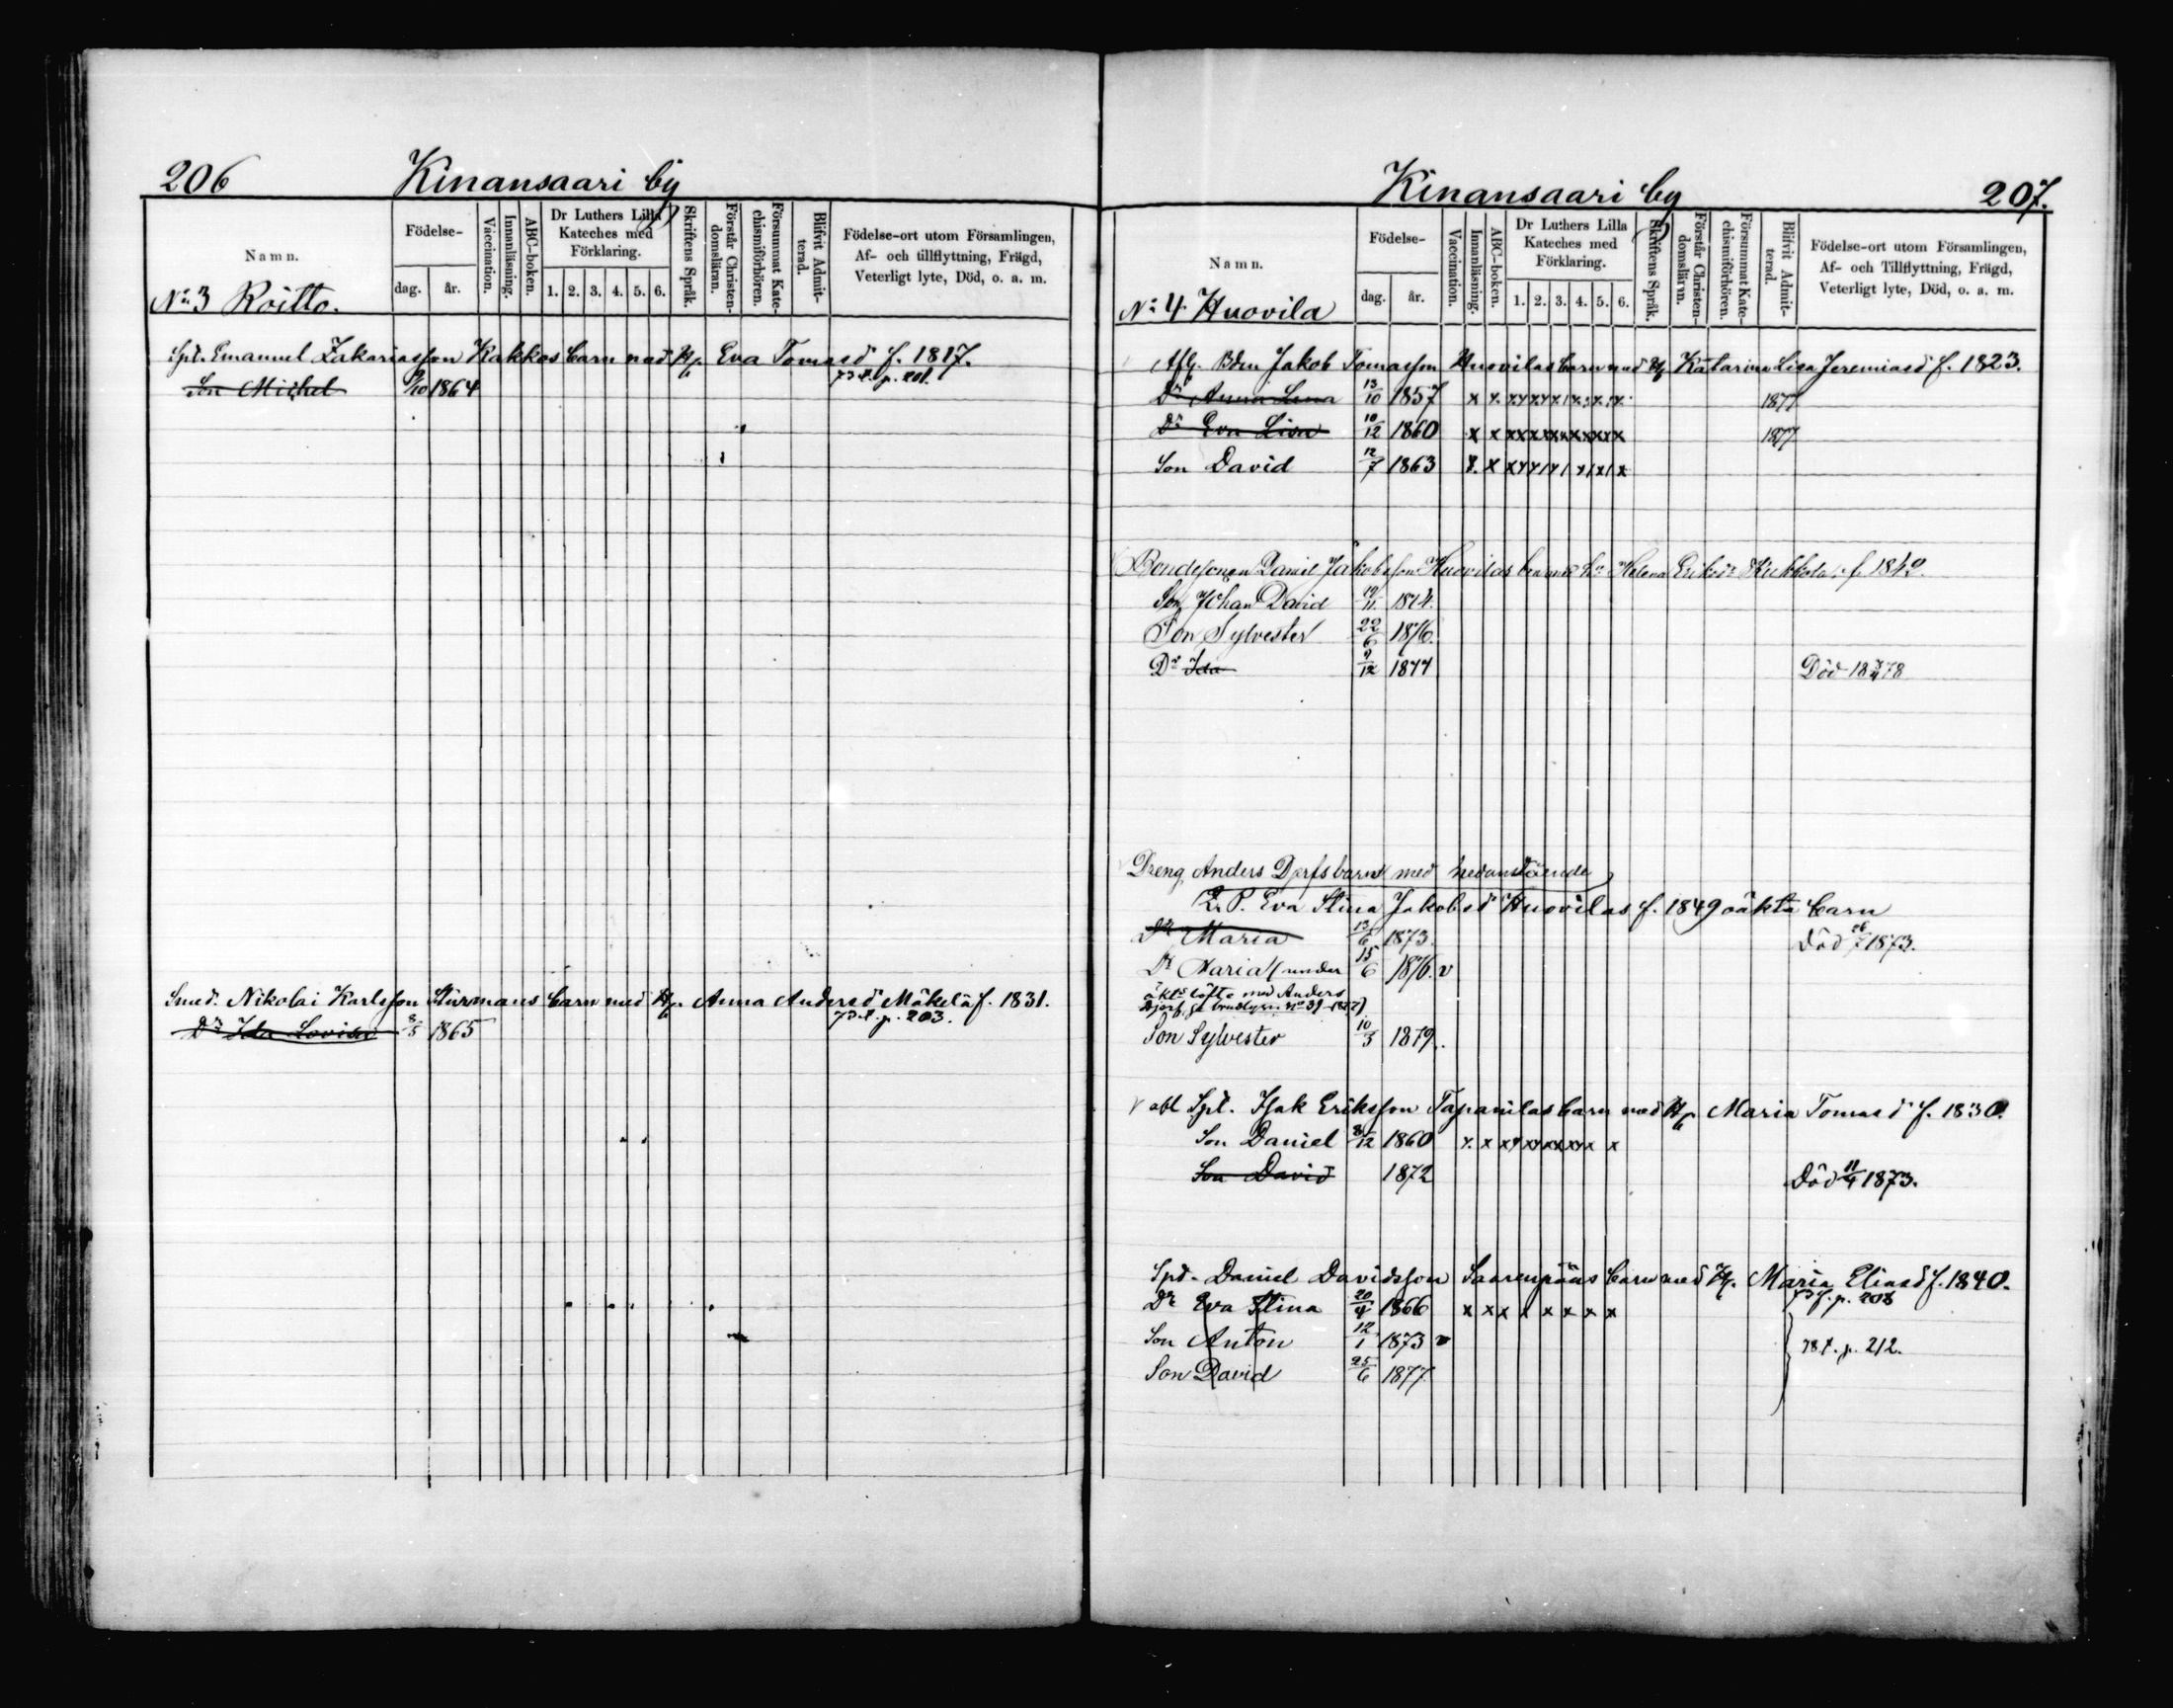 206 Kinansaari by
Namn.
Födelse-
dag. år.
Vaccination.
Innanläsning.
ABC-boken.
Dr Luthers Lilla Kateches med Förklaring.
1. 2. 3. 4. 5. 6.
Skriftens Språk.
Förstår Christendomsläran.
Försummat Katechismiförhören.
Blifvit Admitterad.
Födelse-ort utom Församlingen,
Af- och tillflyttning, Frägd,
Veterligt lyte, Död, o. a. m.
No 3 Roitto.
Spt. Emanuel Zakariasson Kakkos barn med H. Eva Tomasd f. 1817.
Son Michel 9/10 1864 73 t. p. 201.
Smed. Nikolai Karlsson Stürmans barn med H. Anna Andersd Mäkelä f. 1831.
Dr Ida Lovisa 8/5 1865 73 t. p. 203.
Kinansaari by 207.
Namn.
Födelse-
dag. år.
Vaccination.
Innanläsning.
ABC-boken.
Dr Luthers Lilla Kateches med Förklaring.
1. 2. 3. 4. 5. 6.
Skriftens Språk.
Förstår Christendomslär'n.
Försummat Katechismiförhören.
Blifvit Admitterad.
Födelse-ort utom Församlingen,
Af- och Tillflyttning, Frägd,
Veterligt lyte, Död, o. a. m.
No 4 Huovila
Afg. Bdn Jakob Tomasson Huovilas barn med H Katarina Lisa Jeremiasd f. 1823.
Dr Anna Lena 13/10 1857 x x x x x x x x x x 1877
Dr Eva Lisa 10/12 1860 x x x x x x x x x x 1877
Son David 12/7 1863 x x x x x x x x x
Bondesonen Daniel Jakobsson Huovilas barn med h. Helena Eriksdr Kukkola, f. 1842.
Son Johan David 19/11 1874.
Son Sylvester 22/6 1876.
Dr Ida 9/12 1877 Död 1878
Dreng Anders Djerfs barn med nedanstående
L. P. Eva Stina Jakobsd Huovilas f. 1849 oäkta barn
Dr Maria 13/6 1873. Död 1873.
Dr Maria (under 15/6 1876. v
äkts löfte med Anders
Djerf,
Son Sylvester 10/3 1879.
v afl Spt. Isak Eriksson Tapanilas barn med H. Maria Tomasd f. 1830.
Son Daniel 8/12 1860 x x x x x x x x x x
Son David 1872 Död 11/4 1873.
Spd. Daniel Davidsson Saarenpääs barn med H. Maria Eliasd f. 1840.
Dr Eva Stina 20/4 1866 x x x x x x x x 73 f. p. 208
Son Anton 12/1 1873 v 78 t. p. 212.
Son David 25/6 1877